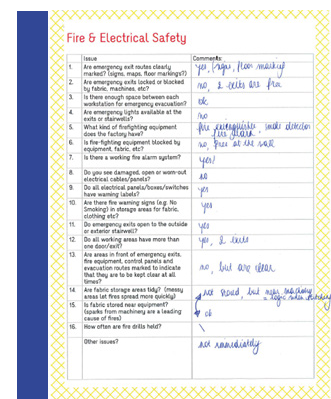 Fire & Electrical Safety
Issue Comments:
1. Are emergency exit routes clearly marked? (signs, maps, floor markings?) yes, (signs, floor marking)
2. Are emergency exits locked or blocked by fabric, machines, etc? no, 2 exits are free
3. Is there enough space between each workstation for emergency evacuation? ok
4. Are emergency lights available at the exits or stairwells? no
5. What kind of firefighting equipment does the factory have? fire extinguisher, smoke detector
6. Is fire-fighting equipment blocked by equipment, fabric, etc? no, free at the wall
7. Is there a working fire alarm system? yes!
8. Do you see damaged, open or worn-out electrical cables/panels? no
9. Do all electrical panels/boxes/switches have warning labels? yes
10. Are there fire warning signs (e.g. No Smoking) in storage areas for fabric, clothing etc? yes
11. Do emergency exits open to the outside or exterior stairwell? yes
12. Do all working areas have more than one door/exit? yes, 2 exits
13. Are areas in front of emergency exits, fire equipment, control panels and evacuation routes marked to indicate that they are to be kept clear at all times? no, but are clear
14. Are fabric storage areas tidy? (messy areas let fires spread more quickly) not stored, but near machinery
15. Is fabric stored near equipment? (sparks from machinery are a leading cause of fires) ok
16. How often are fire drills held? \
Other issues? not immediately